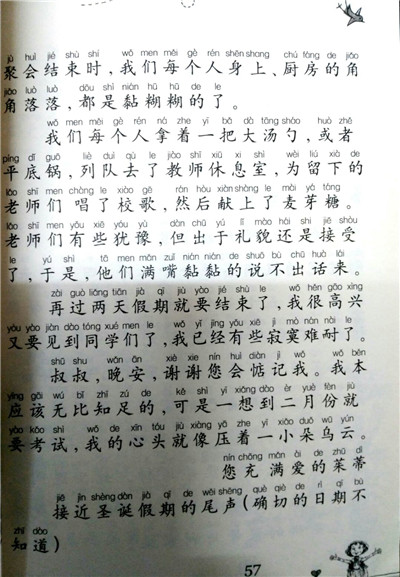 jù huì jié shù shí wǒ men měi gè rén shēn shang chú fáng de jiǎo
聚会结束时，我们每个人身上、厨房的角
jiǎo luò luò dōu shì nián hū hū de le
角落落，都是黏糊糊的了。
wǒ men měi gè rén ná zhe yì bǎ dà tāng sháo huò zhě
我们每个人拿着一把大汤勺，或者
píng dǐ guō liè duì qù le jiào shī xiū xi shì wèi liú xià de
平底锅，列队去了教师休息室，为留下的
lǎo shī men chàng le xiào gē rán hòu xiàn shàng le mài yá táng
老师们唱了校歌，然后献上了麦芽糖。
lǎo shī men yǒu xiē yóu yù dàn chū yú lǐ mào hái shi jiē shòu
老师们有些犹豫，但出于礼貌还是接受
le yú shì tā men mǎn zuǐ nián nián de shuō bù chū huà lái
了，于是，他们满嘴黏黏的说不出话来。
zài guò liǎng tiān jià qī jiù yào jié shù le wǒ hěn gāo xìng
再过两天假期就要结束了，我很高兴
yòu yào jiàn dào tóng xué men le wǒ yǐ jīng yǒu xiē jì mò nán nài le
又要见到同学们了，我已经有些寂寞难耐了。
shū shu wǎn ān xiè xie nín huì diàn jì wǒ wǒ běn
叔叔，晚安，谢谢您会惦记我。我本
yīng gāi wú bǐ zhī zú de kě shì yì xiǎng dào èr yuè fèn jiù
应该无比知足的，可是一想到二月份就
yào kǎo shì wǒ de xīn tóu jiù xiàng yā zhe yì xiǎo duǒ wū yún
要考试，我的心头就像压着一小朵乌云。
nín chōng mǎn ài de zhū dì
您充满爱的茱蒂
jiē jìn shèng dàn jià qī de wěi shēng què qiè de rì qī bù
接近圣诞假期的尾声（确切的日期不
zhī dào
知道）
57